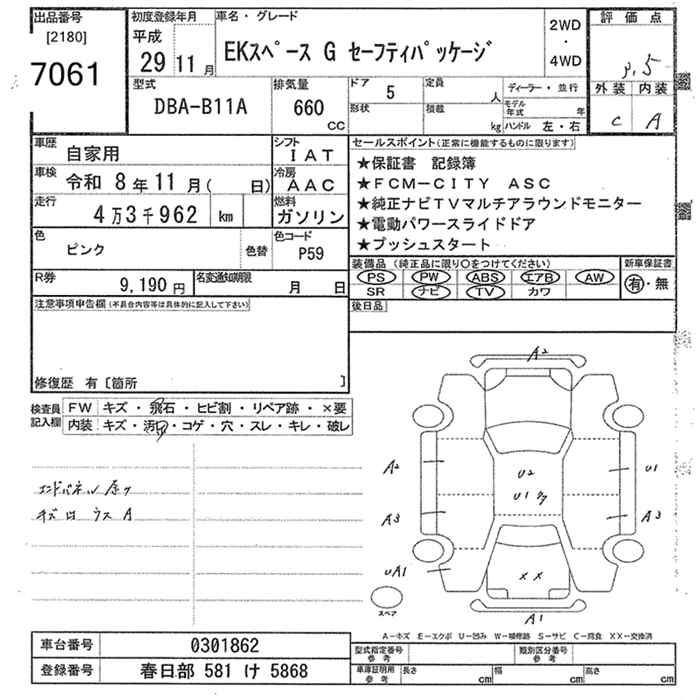 出品番号
[2180]
7061
初度登録年月
平成
29 11 月
車名・グレード
EKスペース G セーフティパッケージ
2WD
・
4WD
評価点
3.5
外装 内装
C A
型式
DBA-B11A
排気量
660
CC
ドア 5
形状
定員 人
積載 kg
ディーラー・並行
モデル年式 年
ハンドル 左・右
車歴 自家用
シフト IAT
車検 令和 8年 11月( 日)
冷房 AAC
走行 4万3千962 km
燃料 ガソリン
色 ピンク 色替
色コード P59
R券 9,190 円
名変通知期限 月 日
セールスポイント(正常に機能するものに限ります)
★保証書 記録簿
★FCM-CITY ASC
★純正ナビTVマルチアラウンドモニター
★電動パワースライドドア
★プッシュスタート
装備品 (純正品に限り○をつけてください)
PS PW ABS エアB AW
SR ナビ TV カワ
新車保証書
有・無
後日品
注意事項申告欄(不具合内容等は具体的に記入して下さい)
修復歴 有 [箇所 ]
検査員記入欄
FW キズ・飛石・ヒビ割・リペア跡・×要
内装 キズ・汚レ・コゲ・穴・スレ・キレ・破レ
エンドパネル
キズ ウス A
A2
A2
U2
U1
U1
A3
A3
UA1
XX
A1
スペア
A-キズ E-エクボ U-凹み W-補修跡 S-サビ C-腐食 XX-交換済
車台番号 0301862
登録番号 春日部 581 け 5868
型式指定番号 参考
類別区分番号 参考
車庫証明用 参考
長さ cm
幅 cm
高さ cm